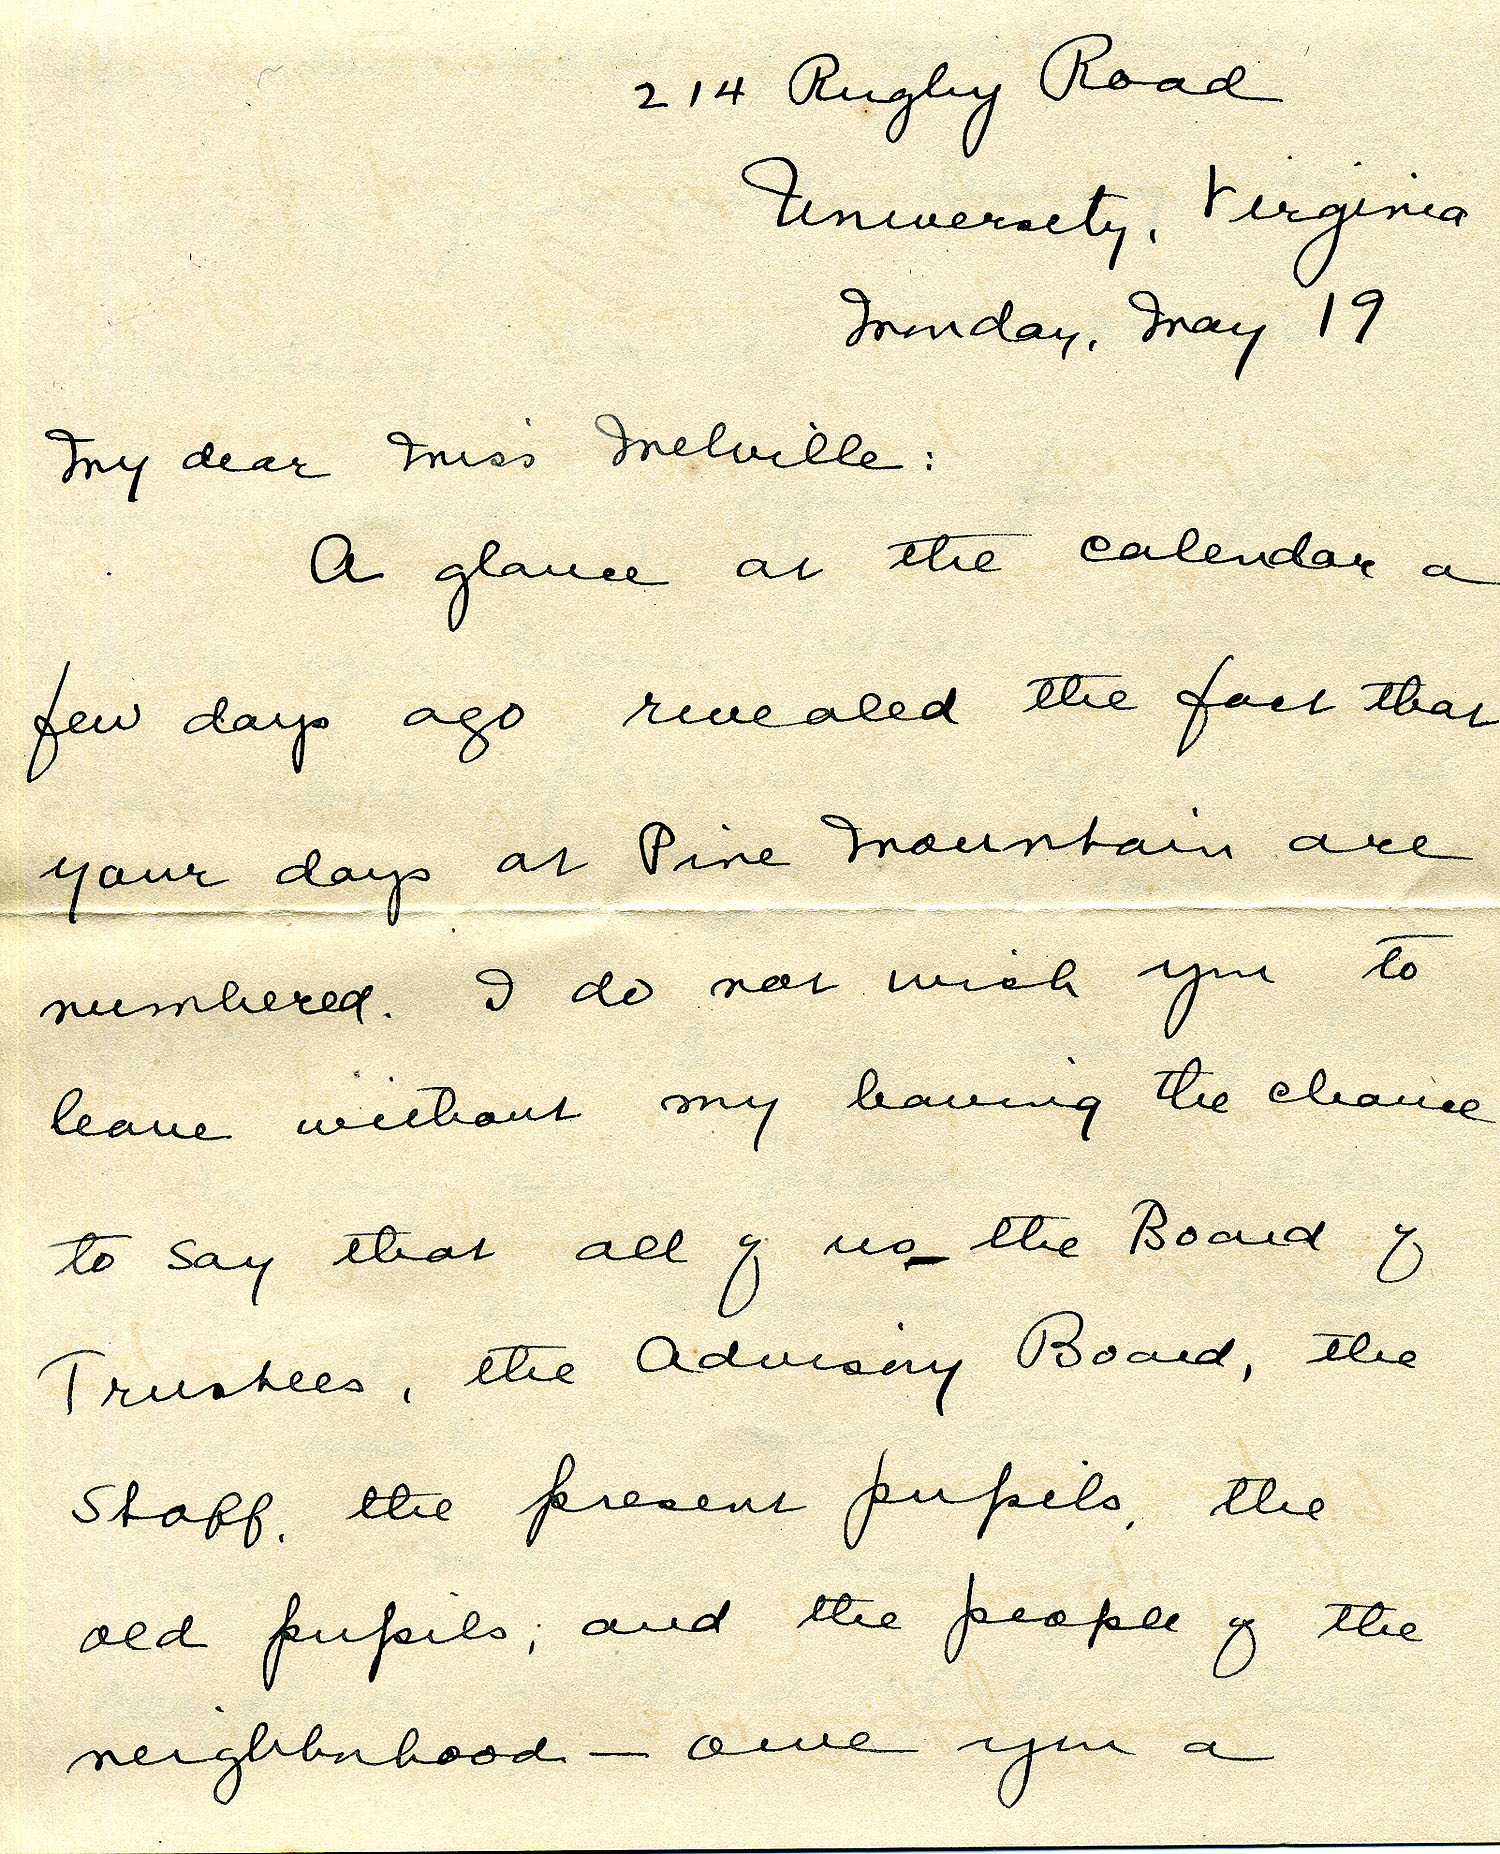 214 Rugby Road
University, Virginia
Monday, May 19
My dear Miss Melville:
A glance at the calendar a
few days ago revealed the fact that
your days at Pine Mountain are
numbered. I do not wish you to
leave without my having the chance
to say that all of us – the Board of
Trustees, the Advisory Board, the
Staff, the present pupils, the
old pupils, and the people of the
neighborhood — owe you a